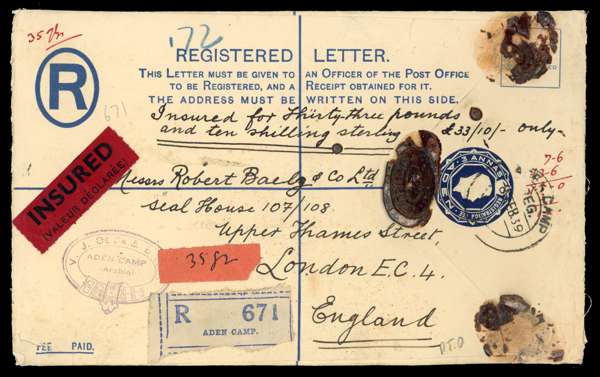 35 gr
172
REGISTERED LETTER.
THIS LETTER MUST BE GIVEN TO AN OFFICER OF THE POST OFFICE
TO BE REGISTERED, AND A RECEIPT OBTAINED FOR IT.
THE ADDRESS MUST BE WRITTEN ON THIS SIDE.
R
671
Insured for Thirty-three pounds
and ten shilling sterling £33/10/- only-
INSURED
(VALEUR DÉCLARÉE)
Messrs Robert Baelz & Co Ltd
Seal House 107/108
Upper Thames Street,
London E.C. 4.
England
3 ANNAS
ADEN
REGISTRATION
7-6
CAMP
REG.
FEB 39
V. J.
ADEN CAMP
(Arabia)
35 gr
R 671
ADEN CAMP.
FEE PAID.
P.T.O